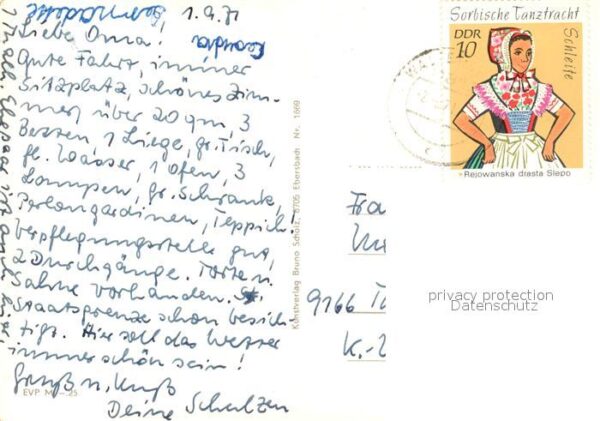 1.9.71
Liebe Oma!
Gute Fahrt, immer
Sitzplatz, schönes Zim-
mer über 20 qm, 3
Betten, 1 Liege, gr. Tisch,
fl. Wasser, 1 Ofen, 3
Lampen, gr. Schrank,
Perlongardinen, Teppich!
Verpflegungsstelle gut,
2 Durchgänge. Torte u.
Sahne vorhanden.
Staatsgrenze schon besich-
tigt. Hier soll das Wetter
immer schön sein!
Gruß u. Kuß
Deine Schatzen
EVP M -.25
Kunstverlag Bruno Scholz, 8705 Ebersbach Nr. 1869
Sorbische Tanztracht
DDR
10
Schleife
Rejowanska drasta Slepo
Fra
9166 Ta
K.-
privacy protection
Datenschutz